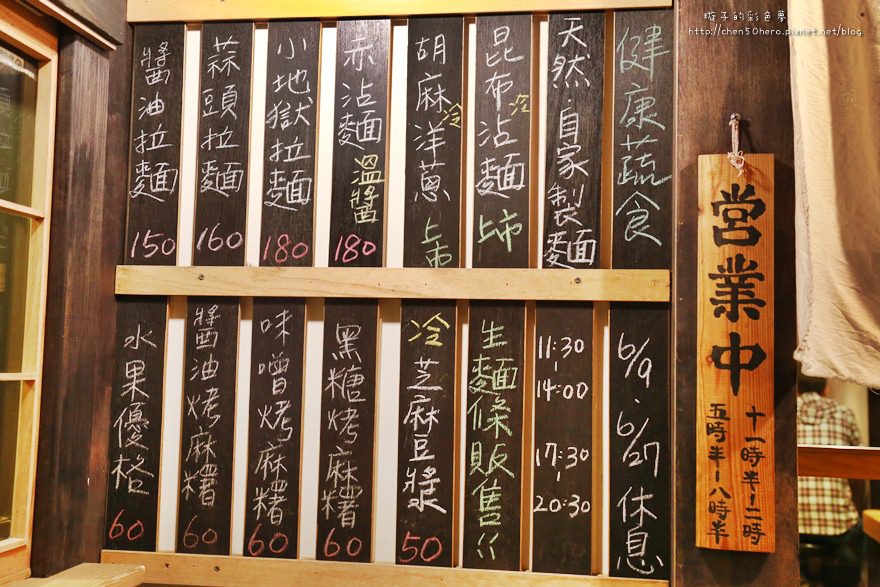 璇子的彩色夢
http://chen50hero.pixnet.net/blog
健康蔬食
天然.自家製麵
昆布沾麵 冷 上市
胡麻洋蔥 冷 上市
赤沾麵 溫醬 180
小地獄拉麵 180
蒜頭拉麵 160
醬油拉麵 150
6/9.6/27休息
11:30-14:00 17:30-20:30
生麵條販售ㄍ
冷芝麻豆漿 50
黑糖烤麻糬 60
味噌烤麻糬 60
醬油烤麻糬 60
水果優格 60
営業中
十一時半-二時
五時半-八時半